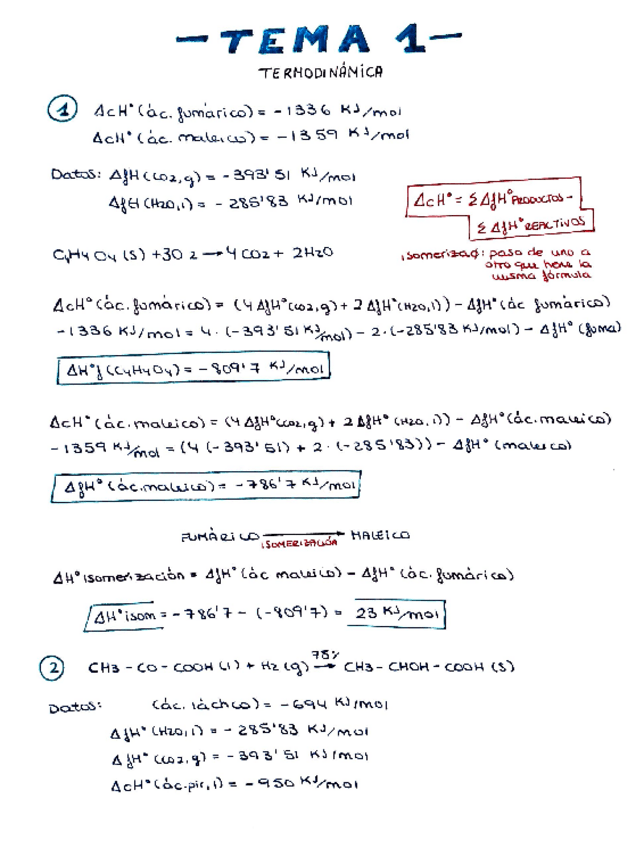 -TEMA 1-
TERMODINÁMICA
1 ΔcH° (ác. fumárico) = -1336 KJ/mol
ΔcH° (ác. maleico) = -1359 KJ/mol
Datos: ΔfH (CO2,g) = -393'51 KJ/mol
ΔfH (H2O,l) = -285'83 KJ/mol
ΔcH° = Σ ΔfH° PRODUCTOS -
Σ ΔfH° REACTIVOS
C4H4O4 (S) + 3O2 → 4CO2 + 2H2O
isomerizaç: paso de uno a
otro que tiene la
misma fórmula
ΔcH° (ác. fumárico) = (4 ΔfH° (CO2,g) + 2 ΔfH° (H2O,l)) - ΔfH° (ác fumárico)
-1336 KJ/mol = 4 · (-393'51 KJ/mol) - 2 · (-285'83 KJ/mol) - ΔfH° (fuma)
ΔH°f (C4H4O4) = -809'7 KJ/mol
ΔcH° (ác. maleico) = (4 ΔfH° (CO2,g) + 2 ΔfH° (H2O,l)) - ΔfH° (ác. maleico)
-1359 KJ/mol = (4 (-393'51) + 2 · (-285'83)) - ΔfH° (maleico)
ΔfH° (ác. maleico) = -786'7 KJ/mol
FUMÁRICO → MALEICO
ISOMERIZACIÓN
ΔH° isomerización = ΔfH° (ác maleico) - ΔfH° (ác. fumárico)
ΔH° isom = -786'7 - (-809'7) = 23 KJ/mol
2 CH3 - CO - COOH (l) + H2 (g) →75% CH3 - CHOH - COOH (S)
Datos: (ác. láctico) = -694 KJ/mol
ΔfH° (H2O,l) = -285'83 KJ/mol
ΔfH° (CO2,g) = -393'51 KJ/mol
ΔcH° (ác.pir,l) = -950 KJ/mol